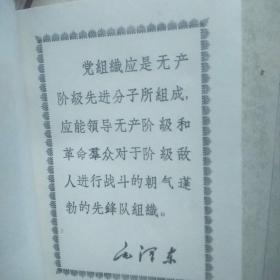 党组織应是无产
阶級先进分子所組成，
应能領导无产阶級和
革命羣众对于阶級敌
人进行战斗的朝气蓬
勃的先鋒队組織。
毛泽东